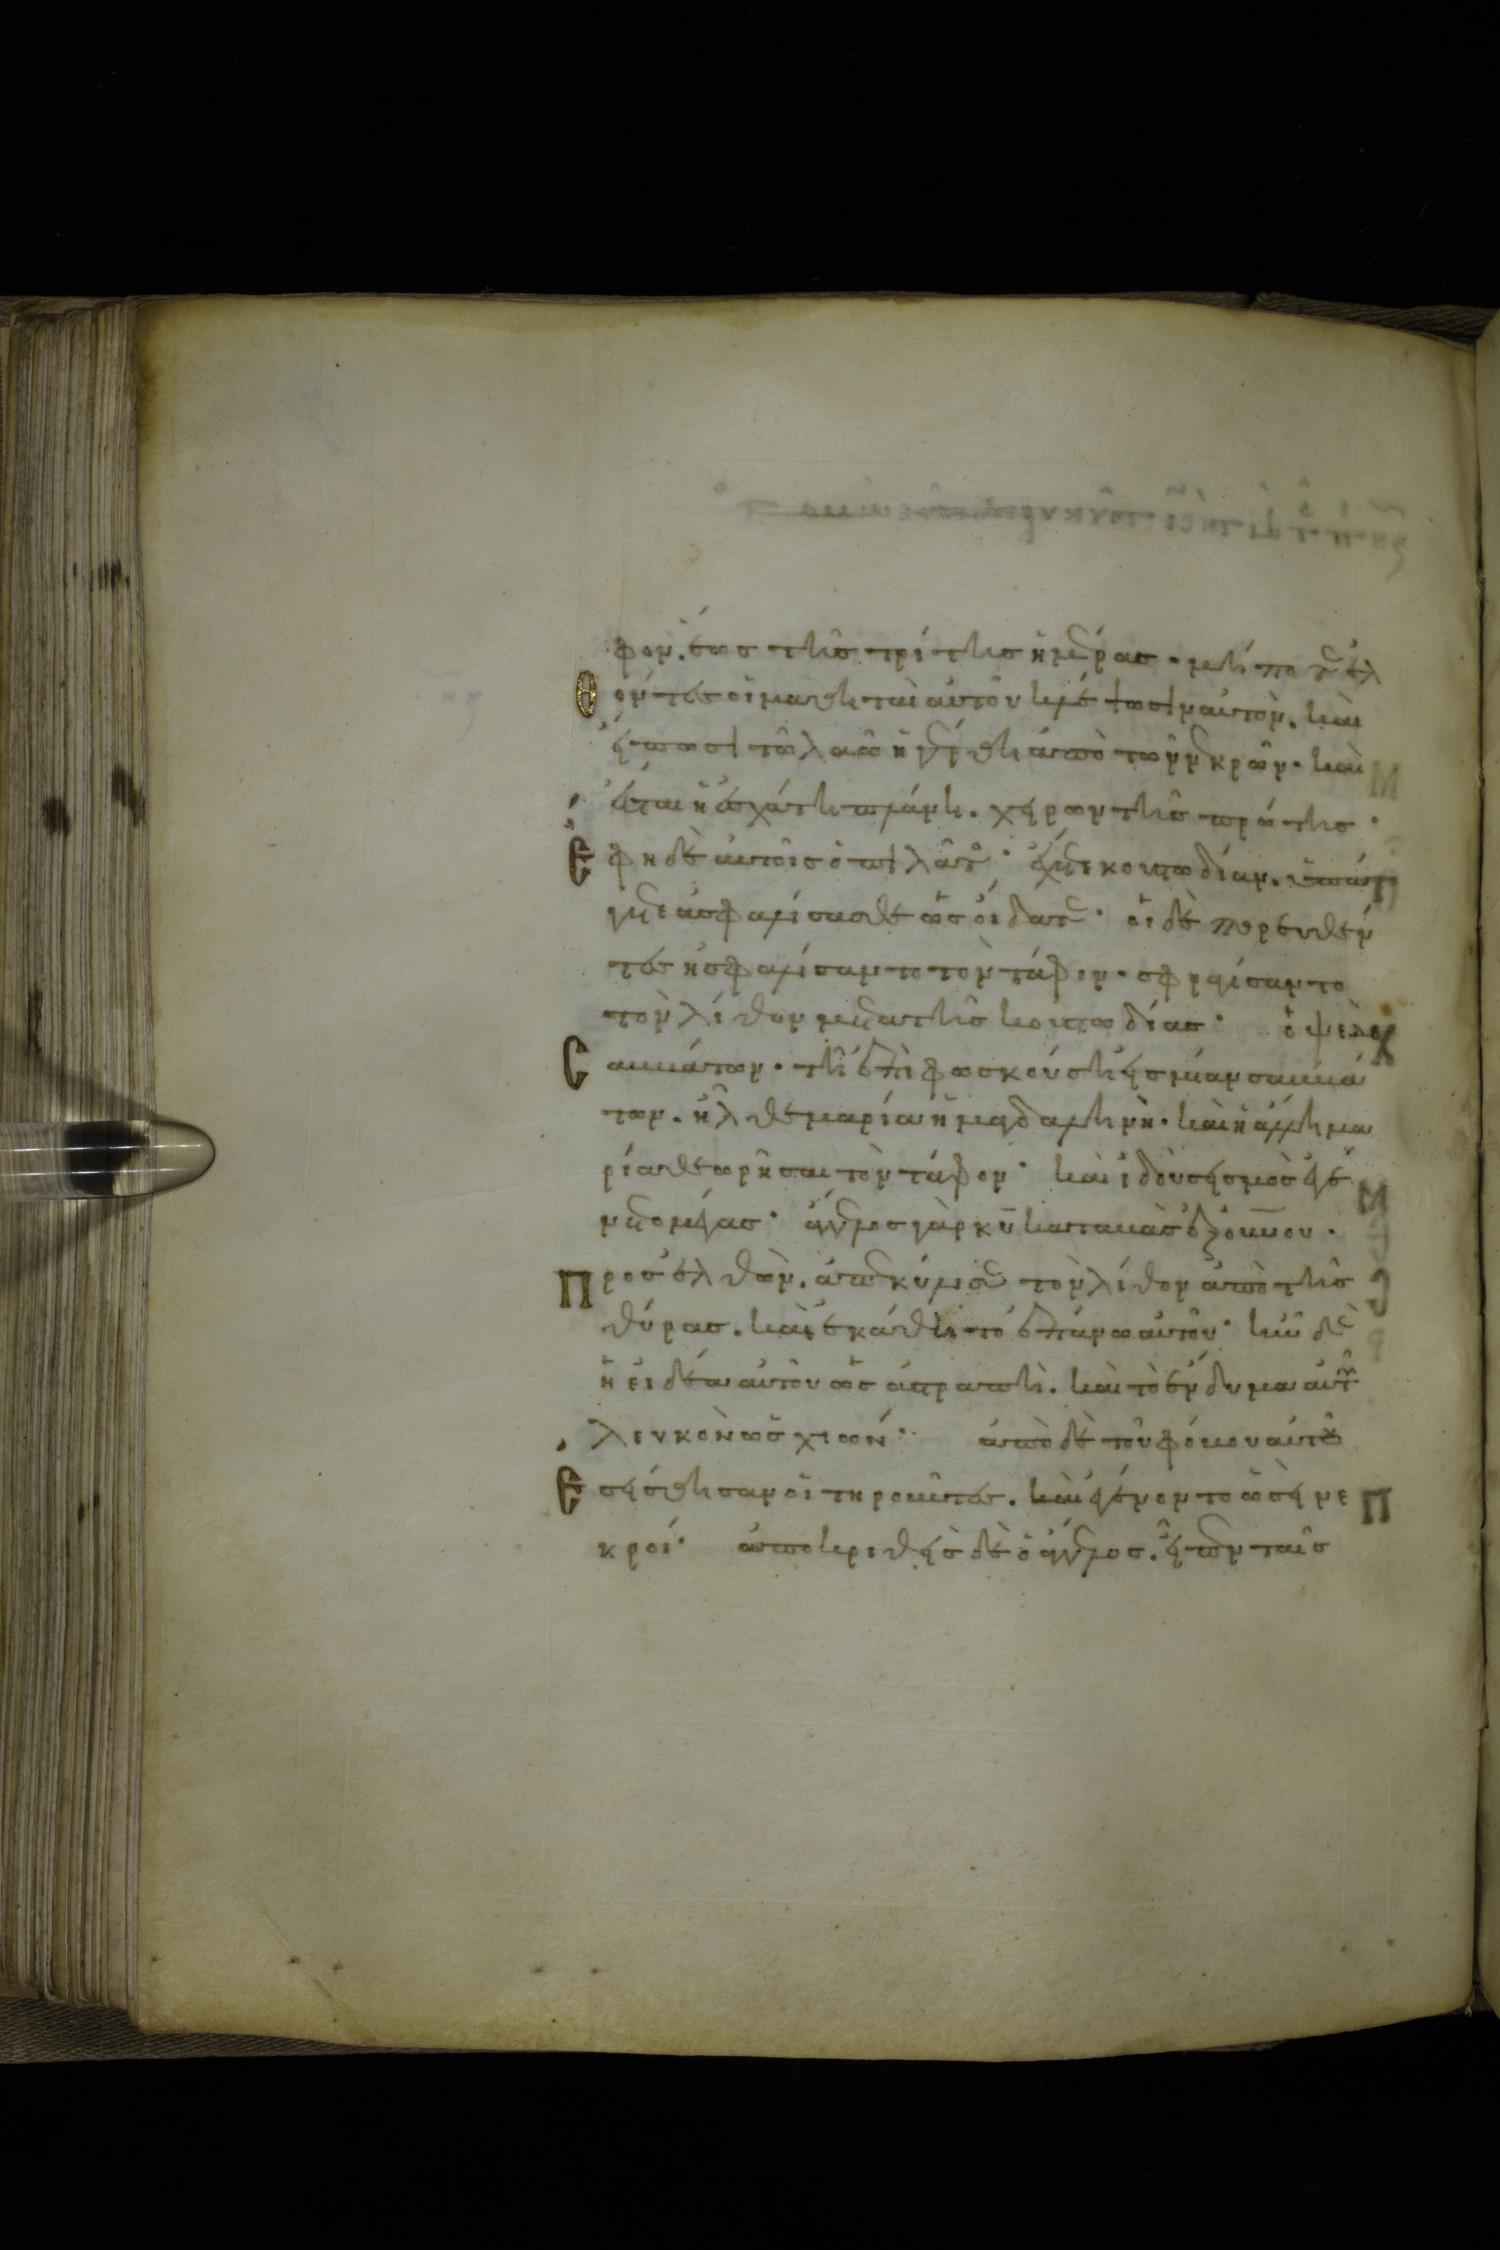 φον. ἕως τῆς τρίτης ἡμέρας· μήποτε ἐλ
Θόντες οἱ μαθηταὶ αὐτοῦ κλέψωσιν αὐτὸν. καὶ
εἴπωσι τῶ λαῶ ἠγέρθη ἀπὸ τῶν νεκρῶν· καὶ
ἔσται ἡ ἐσχάτη πλάνη. χείρων τῆς πρώτης·
Ἔφη δὲ αὐτοῖς ὁ πιλάτος· ἔχετε κουστωδίαν. ὑπάγε
τε ἀσφαλίσασθε ὡς οἴδατε· οἱ δὲ πορευθέν
τες ἠσφαλίσαντο τὸν τάφον· σφραγίσαντες
τὸν λίθον μετὰ τῆς κουστωδίας· ὀψὲ δὲ
Σαββάτων· τῆ ἐπιφωσκούση εἰς μίαν σαββά
των. ἦλθε μαρία ἡ μαγδαληνὴ· καὶ ἡ ἄλλη μα
ρία θεωρῆσαι τὸν τάφον· καὶ ἰδοὺ σεισμὸς ἐγέ
νετο μέγας· ἄγγελος γὰρ κυ καταβὰς ἐξ οὐνου·
Προσελθὼν. ἀπεκύλισε τὸν λίθον ἀπὸ τῆς
θύρας. καὶ ἐκάθητο ἐπάνω αὐτοῦ· ἦν δὲ
ἡ εἰδέα αὐτοῦ ὡς ἀστραπὴ. καὶ τὸ ἔνδυμα αὐτοῦ
λευκὸν ὡς χιών· ἀπὸ δὲ τοῦ φόβου αὐτοῦ
Ἐσείσθησαν οἱ τηροῦντες. καὶ ἐγένοντο ὡσεὶ νε
κροί· ἀποκριθεὶς δὲ ὁ ἄγγελος. εἶπεν ταῖς